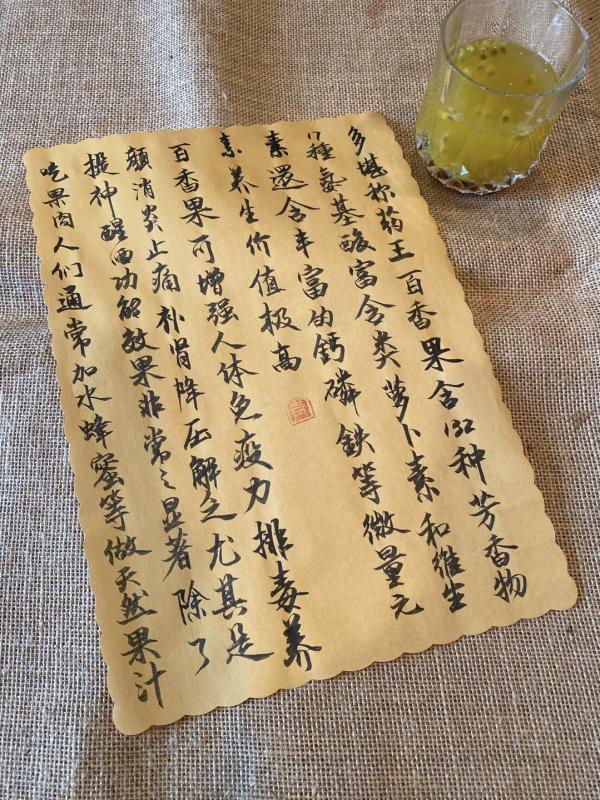 多堪称药王百香果含132种芳香物
17種氨基酸富含类萝卜素和維生
素還含丰富的鈣磷鉄等微量元
素养生价值极高
百香果可增强人体免疫力排毒养
顔消炎止痛补肾降压解乏尤其是
提神醒酒功能效果非常之显著除了
吃果肉人们通常加水蜂蜜等做天然果汁